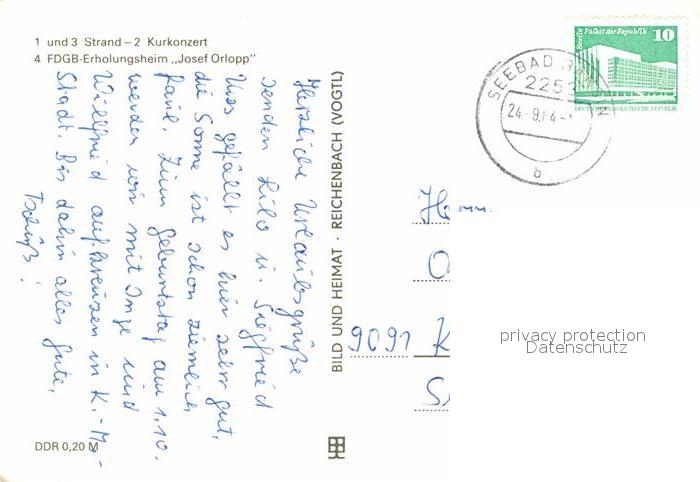 1 und 3 Strand – 2 Kurkonzert
4 FDGB-Erholungsheim „Josef Orlopp"
Herzliche Urlaubsgrüße
senden Lilo u. Siegfried
Uns gefällt es hier sehr gut,
die Sonne ist schon ziemlich
faul. Zum Geburtstag am 1.10.
werden wir mit Inge und
Willfried aufkreuzen in K.-M.-
Stadt. Bis dahin alles Gute,
Tschüß!
DDR 0,20 M
BILD UND HEIMAT · REICHENBACH (VOGTL)
Berlin Palast der Republik 10
DEUTSCHE DEMOKRATISCHE REPUBLIK
SEEBAD
225
24.-9.84-
b
9091 K
privacy protection
Datenschutz